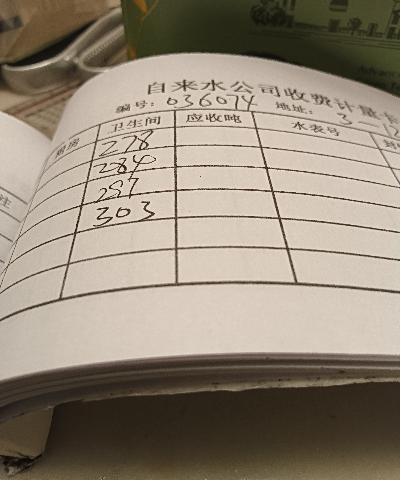 自来水公司收费计量卡
编号: 036074 地址: 3-12
厨房 卫生间 应收吨 水表号
278
284
297
303
注